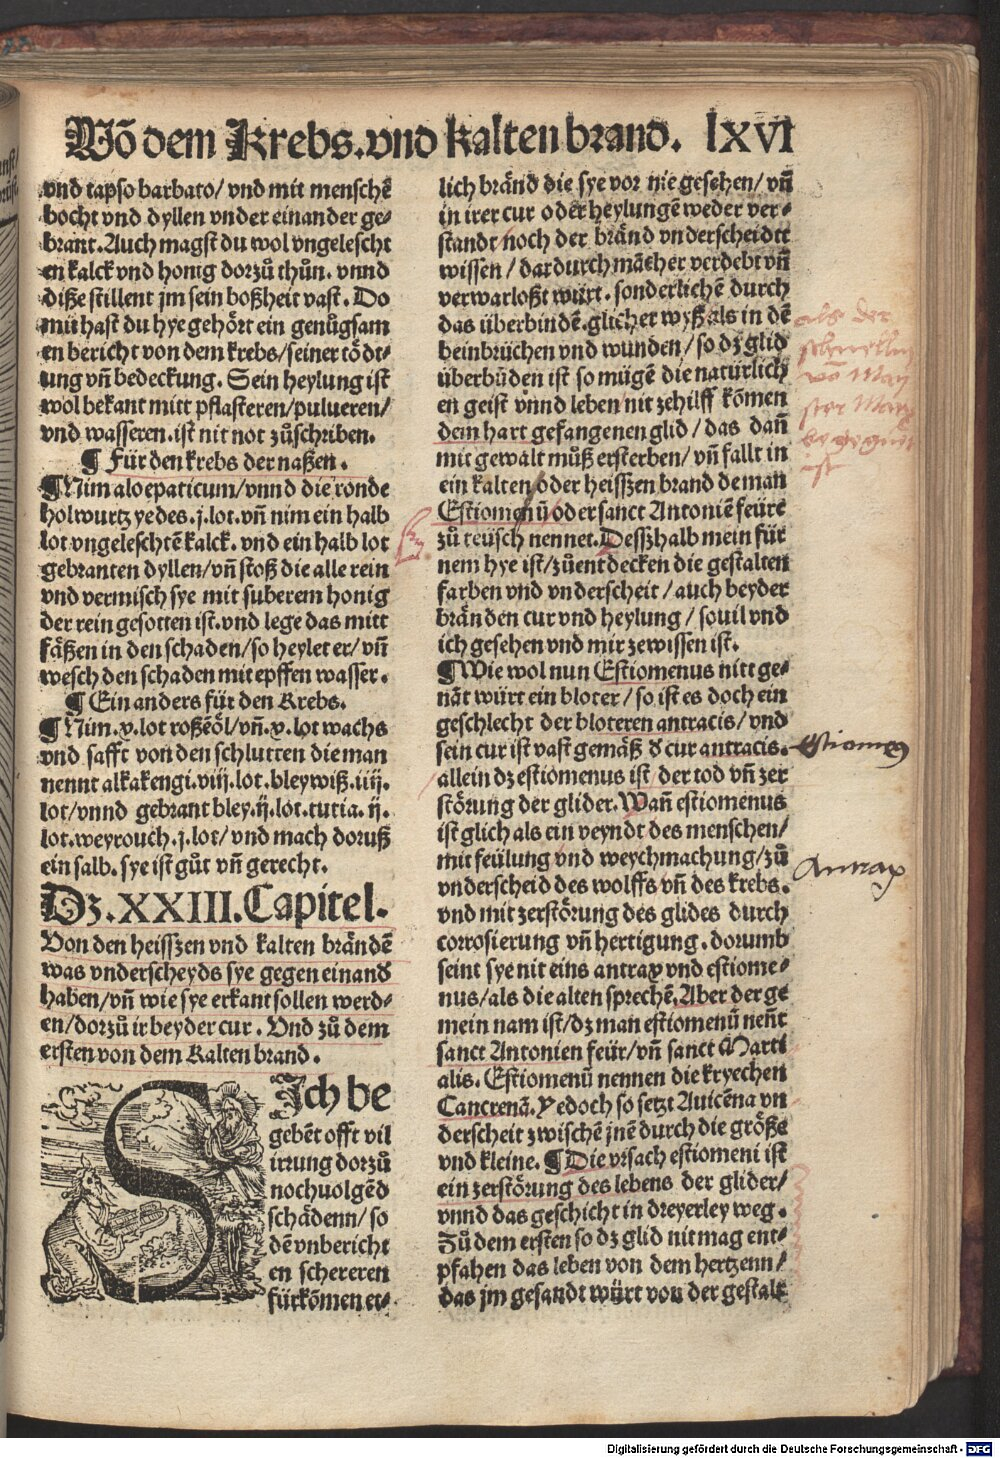 Võ dem Krebs. vnd kalten brand. lxvi
vnd tapso barbato/ vnd mit menschē
bocht vnd dyllen vnder einander ge⸗
brant. Auch magst du wol vngelescht
en kalck vnd honig dorzů thůn. vnnd
diße stillent jm sein boßheit vast. Do
mit hast du hye gehört ein genůgsam
en bericht von dem krebs/ seiner tödt⸗
ung vñ bedeckung. Sein heylung ist
wol bekant mitt pflasteren/ pulueren/
vnd wasseren. ist nit not zůschriben.
¶ Für den krebs der naßen.
¶ Nim aloepaticum/ vnnd die ronde
holwurtz yedes. j. lot. vñ nim ein halb
lot vngeleschtē kalck. vnd ein halb lot
gebranten dyllen/ vñ stoß die alle rein
vnd vermisch sye mit suberem honig
der rein gesotten ist. vnd lege das mitt
fäßen in den schaden/ so heylet er/ vñ
wesch den schaden mit epffen wasser.
¶ Ein anders für den Krebs.
¶ Nim. v. lot roßēöl/ vñ. v. lot wachs
vnd safft von den schlutten die man
nennt alkakengi. viij. lot. bleywiß. iiij.
lot/ vnnd gebrant bley. ij. lot. tutia. ij.
lot. weyrouch. j. lot/ vnd mach doruß
ein salb. sye ist gůt vñ gerecht.
Dz. XXIII. Capitel.
Von den heisszen vnd kalten brändē
was vnderscheyds sye gegen einand
haben/ vñ wie sye erkant sollen werd⸗
en/ dorzů ir beyder cur. Vnd zů dem
ersten von dem Kalten brand.
Sich be
gebēt offt vil
irrung dorzů
nochuolgēd
schädenn/ so
dē vnbericht
en schereren
fürkōmen et⸗
lich bränd die sye vor nie gesehen/ vñ
in irer cur oder heylungē weder ver⸗
standt noch der bränd vnderscheidtt
wissen/ dardurch mācher verdebt vñ
verwarloßt würt. sonderlichē durch
das überbindē. glicher wyß als in dē
beinbrüchen vnd wunden/ so dz glid
überbūden ist so mügē die natürlich
en geist vnnd leben nit zehilff kōmen
dem hart gefangenen glid/ das dañ
mit gewalt můß ersterben/ vñ fallt in
ein kalten oder heisszen brand de man
Estiomenū oder sanct Antoniē feüre
zů teüsch nennet. Desszhalb mein für
nem hye ist/ zůentdecken die gestalten
farben vnd vnderscheit/ auch beyder
bränden cur vnd heylung/ souil vnd
ich gesehen vnd mir zewissen ist.
¶ Wie wol nun Estiomenus nitt ge⸗
nāt würt ein bloter/ so ist es doch ein
geschlecht der bloteren antracis/ vnd
sein cur ist vast gemäß d cur antracis.
allein dz estiomenus ist der tod vñ zer
störung der glider. Wañ estiomenus
ist glich als ein veyndt des menschen/
mit feülung vnd weychmachung/ zů
vnderscheid des wolffs vñ des krebs.
vnd mit zerstörung des glides durch
corrosierung vñ hertigung. dorumb
seint sye nit eins antrax vnd estiome⸗
nus/ als die alten sprechē. Aber der ge
mein nam ist/ dz man estiomenū neñt
sanct Antonien feür/ vñ sanct Marti
alis. Estiomenū nennen die kryechen
Cancrenā. Yedoch so setzt Auicēna vn
derscheit zwischē jnē durch die größe
vnd kleine. ¶ Die vrsach estiomeni ist
ein zerstörung des lebens der glider/
vnnd das geschicht in dreyerley weg.
Zů dem ersten so dz glid nit mag ent⸗
pfahen das leben von dem hertzenn/
das jm gesandt würt von der gestalt
als der
von May
ster
ist
Estiomen
Antrax
Digitalisierung gefördert durch die Deutsche Forschungsgemeinschaft - DFG